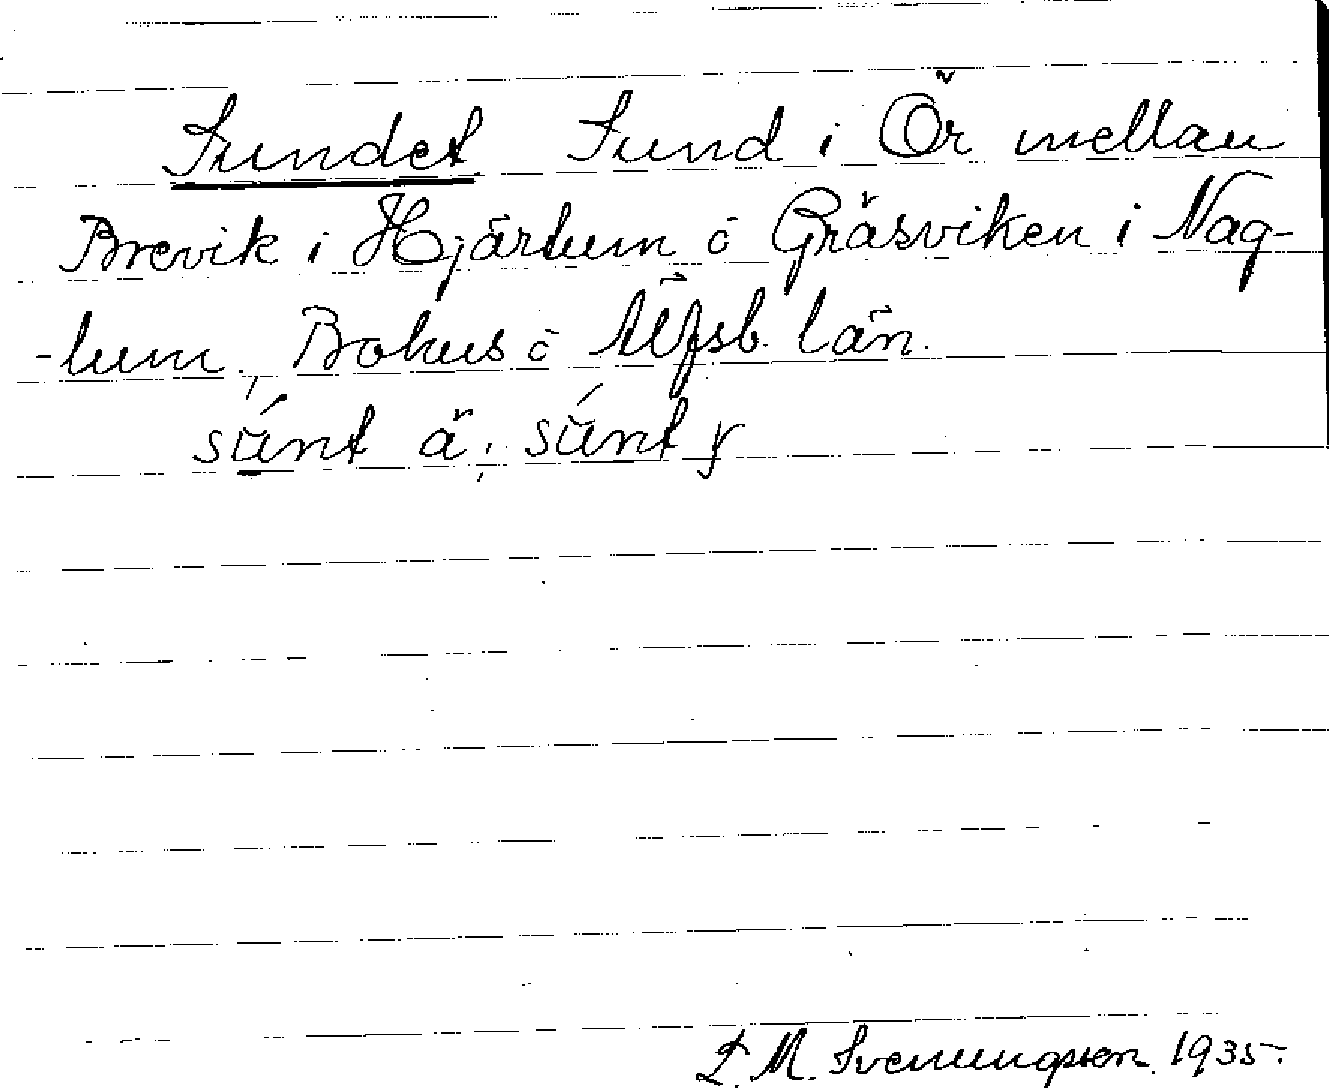 Sundet Sund i Ör mellan
Brevik i Hjärtum o Gräsviken i Nag-
-lum, Bohus o Älfsb. län.
súnt ä; súnt y
L. M. Svenungsson. 1935.